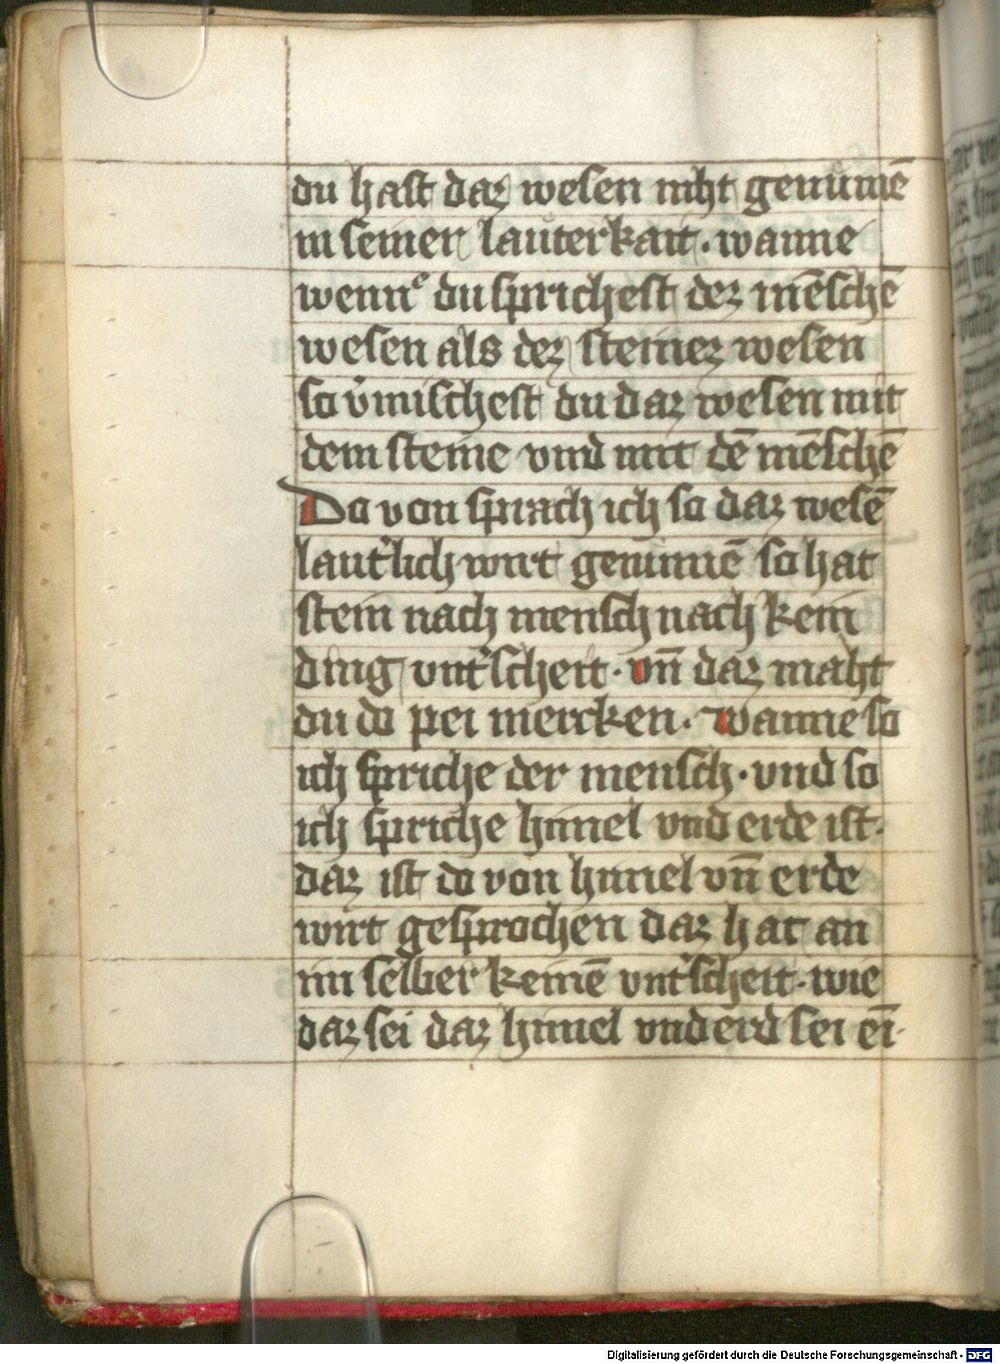 du hast daz wesen niht genumē
in seiner lauterkait · wanne
wennᵉ du sprichest dez mēschē
wesen als dez steinez wesen
so v̾mischest du daz wesen mit
dem steine vnd mit dē mēschē
Do von sprach ich so daz wesē
laut̾lich wirt genūmē so hat
stein nach mensch nach kein
ding vnt̾scheit · vn̄ daz maht
du do pei mercken · wanne so
ich spriche der mensch · vnd so
ich spriche himel vnd erde ist ·
daz ist do von himel vn̄ erde
wirt gesprochen daz hat an
im selber keinē vnt̾scheit · wie
daz sei daz himel vnd erd sei ei̅
Digitalisierung gefördert durch die Deutsche Forschungsgemeinschaft - DFG